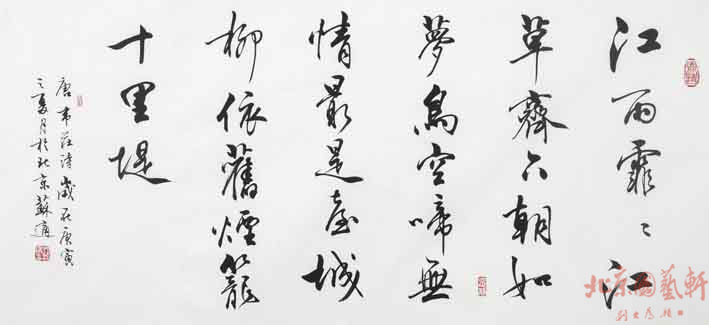 江雨霏〻江
草齊六朝如
夢鳥空啼無
情最是臺城
柳依舊煙籠
十里堤
唐韋莊詩歲在庚寅
之夏月於北京蘇適
北京國藝軒